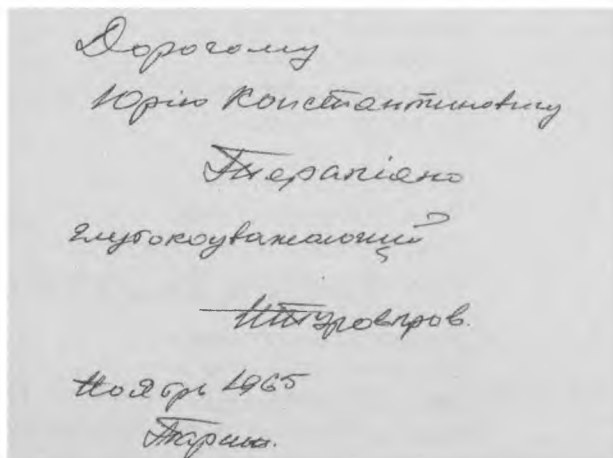 Дорогому
Юрію Константиновичу
Терапіано
глубокоуважающий
Ноябрь 1965
Париж.